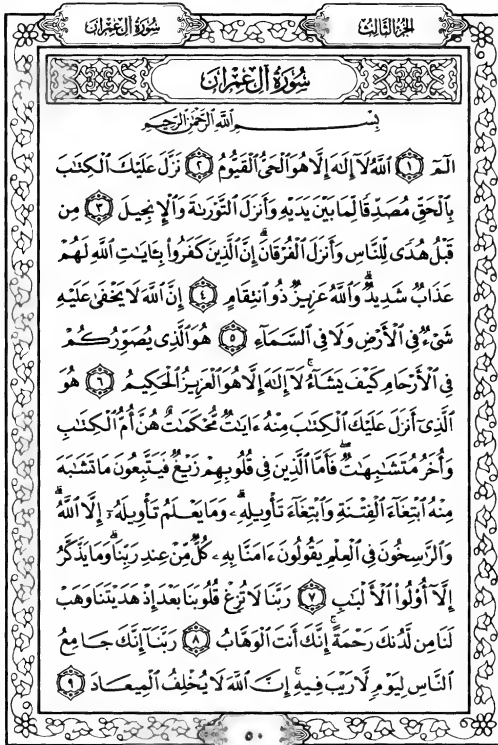 الجُزْءُ الثَّالِثُ
سُورَةُ آلِ عِمْرَانَ
سُورَةُ آلِ عِمْرَانَ
بِسْمِ ٱللَّهِ ٱلرَّحْمَٰنِ ٱلرَّحِيمِ
الٓمٓ ١ ٱللَّهُ لَآ إِلَٰهَ إِلَّا هُوَ ٱلْحَىُّ ٱلْقَيُّومُ ٢ نَزَّلَ عَلَيْكَ ٱلْكِتَٰبَ
بِٱلْحَقِّ مُصَدِّقًا لِّمَا بَيْنَ يَدَيْهِ وَأَنزَلَ ٱلتَّوْرَىٰةَ وَٱلْإِنجِيلَ ٣ مِن
قَبْلُ هُدًى لِّلنَّاسِ وَأَنزَلَ ٱلْفُرْقَانَ ۗ إِنَّ ٱلَّذِينَ كَفَرُوا۟ بِـَٔايَٰتِ ٱللَّهِ لَهُمْ
عَذَابٌ شَدِيدٌ ۗ وَٱللَّهُ عَزِيزٌ ذُو ٱنتِقَامٍ ٤ إِنَّ ٱللَّهَ لَا يَخْفَىٰ عَلَيْهِ
شَىْءٌ فِى ٱلْأَرْضِ وَلَا فِى ٱلسَّمَآءِ ٥ هُوَ ٱلَّذِى يُصَوِّرُكُمْ
فِى ٱلْأَرْحَامِ كَيْفَ يَشَآءُ ۚ لَآ إِلَٰهَ إِلَّا هُوَ ٱلْعَزِيزُ ٱلْحَكِيمُ ٦ هُوَ
ٱلَّذِىٓ أَنزَلَ عَلَيْكَ ٱلْكِتَٰبَ مِنْهُ ءَايَٰتٌ مُّحْكَمَٰتٌ هُنَّ أُمُّ ٱلْكِتَٰبِ
وَأُخَرُ مُتَشَٰبِهَٰتٌ ۖ فَأَمَّا ٱلَّذِينَ فِى قُلُوبِهِمْ زَيْغٌ فَيَتَّبِعُونَ مَا تَشَٰبَهَ
مِنْهُ ٱبْتِغَآءَ ٱلْفِتْنَةِ وَٱبْتِغَآءَ تَأْوِيلِهِۦ ۗ وَمَا يَعْلَمُ تَأْوِيلَهُۥٓ إِلَّا ٱللَّهُ ۗ
وَٱلرَّٰسِخُونَ فِى ٱلْعِلْمِ يَقُولُونَ ءَامَنَّا بِهِۦ كُلٌّ مِّنْ عِندِ رَبِّنَا ۗ وَمَا يَذَّكَّرُ
إِلَّآ أُو۟لُوا۟ ٱلْأَلْبَٰبِ ٧ رَبَّنَا لَا تُزِغْ قُلُوبَنَا بَعْدَ إِذْ هَدَيْتَنَا وَهَبْ
لَنَا مِن لَّدُنكَ رَحْمَةً ۚ إِنَّكَ أَنتَ ٱلْوَهَّابُ ٨ رَبَّنَآ إِنَّكَ جَامِعُ
ٱلنَّاسِ لِيَوْمٍ لَّا رَيْبَ فِيهِ ۚ إِنَّ ٱللَّهَ لَا يُخْلِفُ ٱلْمِيعَادَ ٩
٥٠